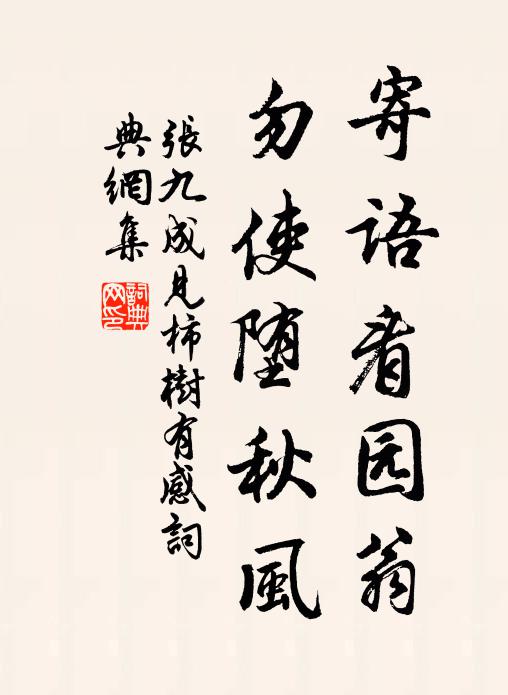 寄语看园翁
勿使堕秋風
張九成見柿樹有感詞
典網集
詞典网印